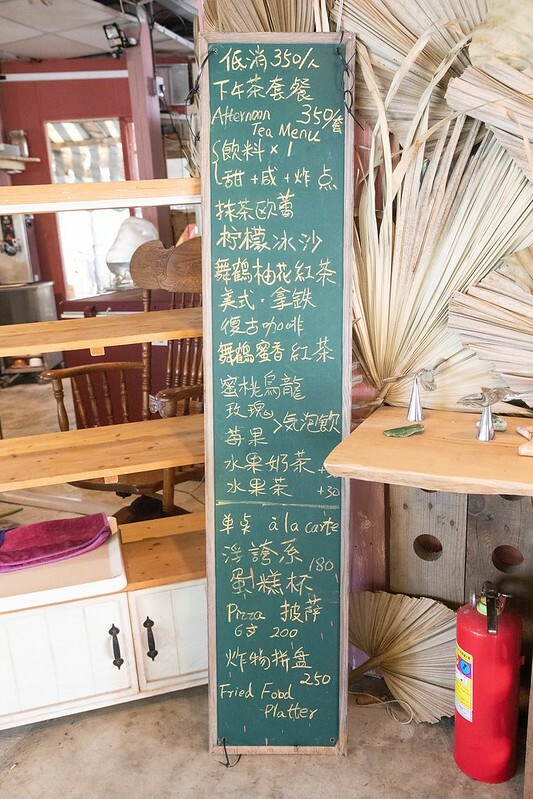 低消350/人
下午茶套餐
Afternoon 350/套
Tea Menu
飲料×1
甜+咸+炸点
抹茶欧蕾
柠檬冰沙
舞鶴柚花紅茶
美式·拿鉄
復古咖啡
舞鶴蜜香紅茶
蜜桃烏龍
玫瑰
莓果 >気泡飲
水果奶茶
水果茶 +30
单桌 à la carte
浮誇系
蛋糕杯 180
Pizza 披薩
6寸 200
炸物拼盘
250
Fried Food
Platter